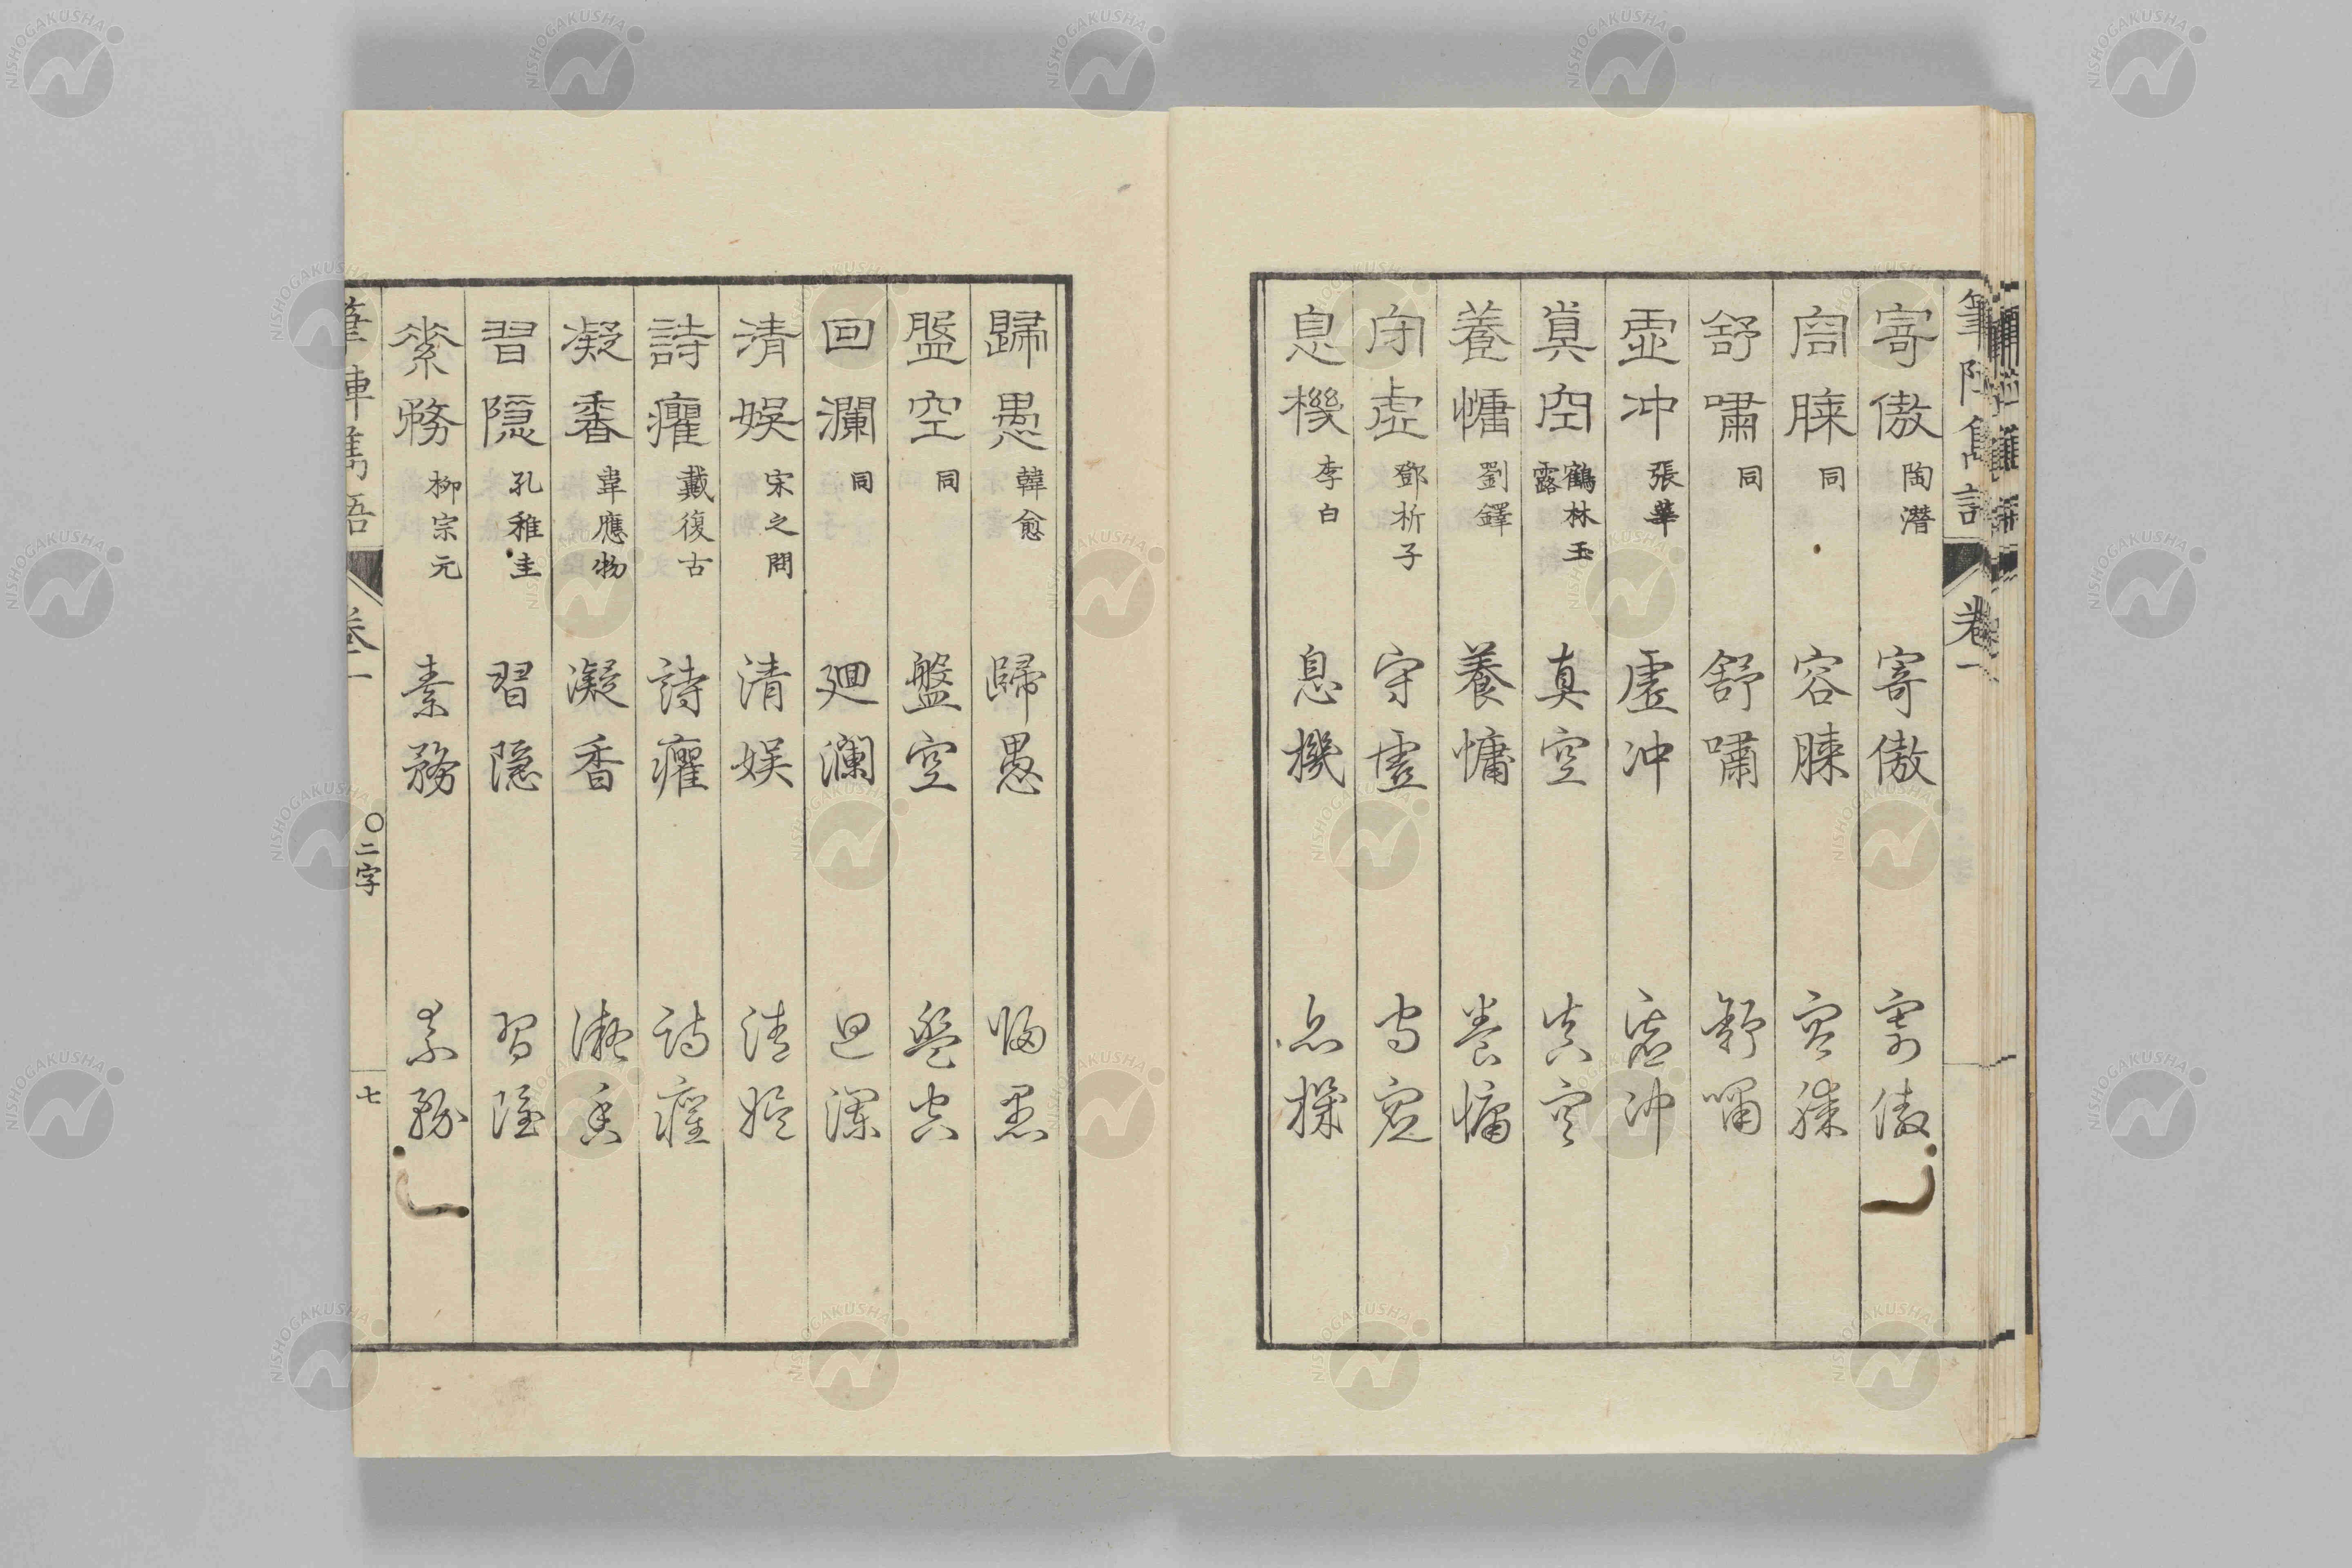 寄傲 陶潜 寄傲 寄傲
容膝 同 容膝 容膝
舒嘯 同 舒嘯 舒嘯
虚冲 張華 虚冲 虚冲
真空 鶴林玉露 真空 真空
養慵 劉鐸 養慵 養慵
守虚 鄧析子 守虚 守虚
息機 李白 息機 息機
歸愚 韓愈 歸愚 歸愚
盤空 同 盤空 盤空
回瀾 同 廻瀾 廻瀾
清娯 宋之問 清娯 清娯
詩癯 戴復古 詩癯 詩癯
凝香 韋應物 凝香 凝香
習隠 孔稚圭 習隠 習隠
素務 柳宗元 素務 素務
筆陣雋語 卷一 〇二字 七
NISHOGAKUSHA